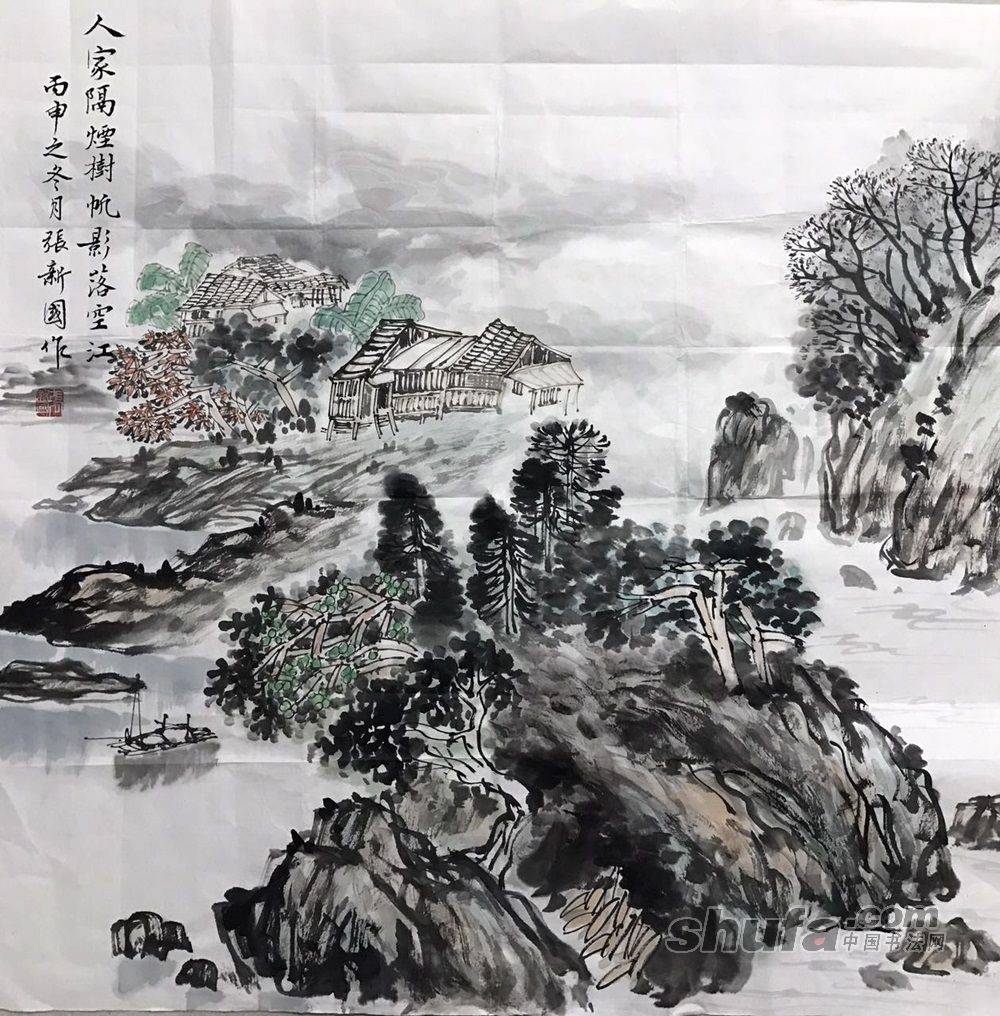 人家隔煙樹帆影落空江
丙申之冬月張新國作
shufa.com
中国书法网